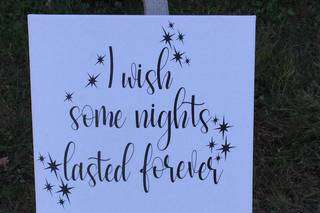 I wish
some nights
lasted forever